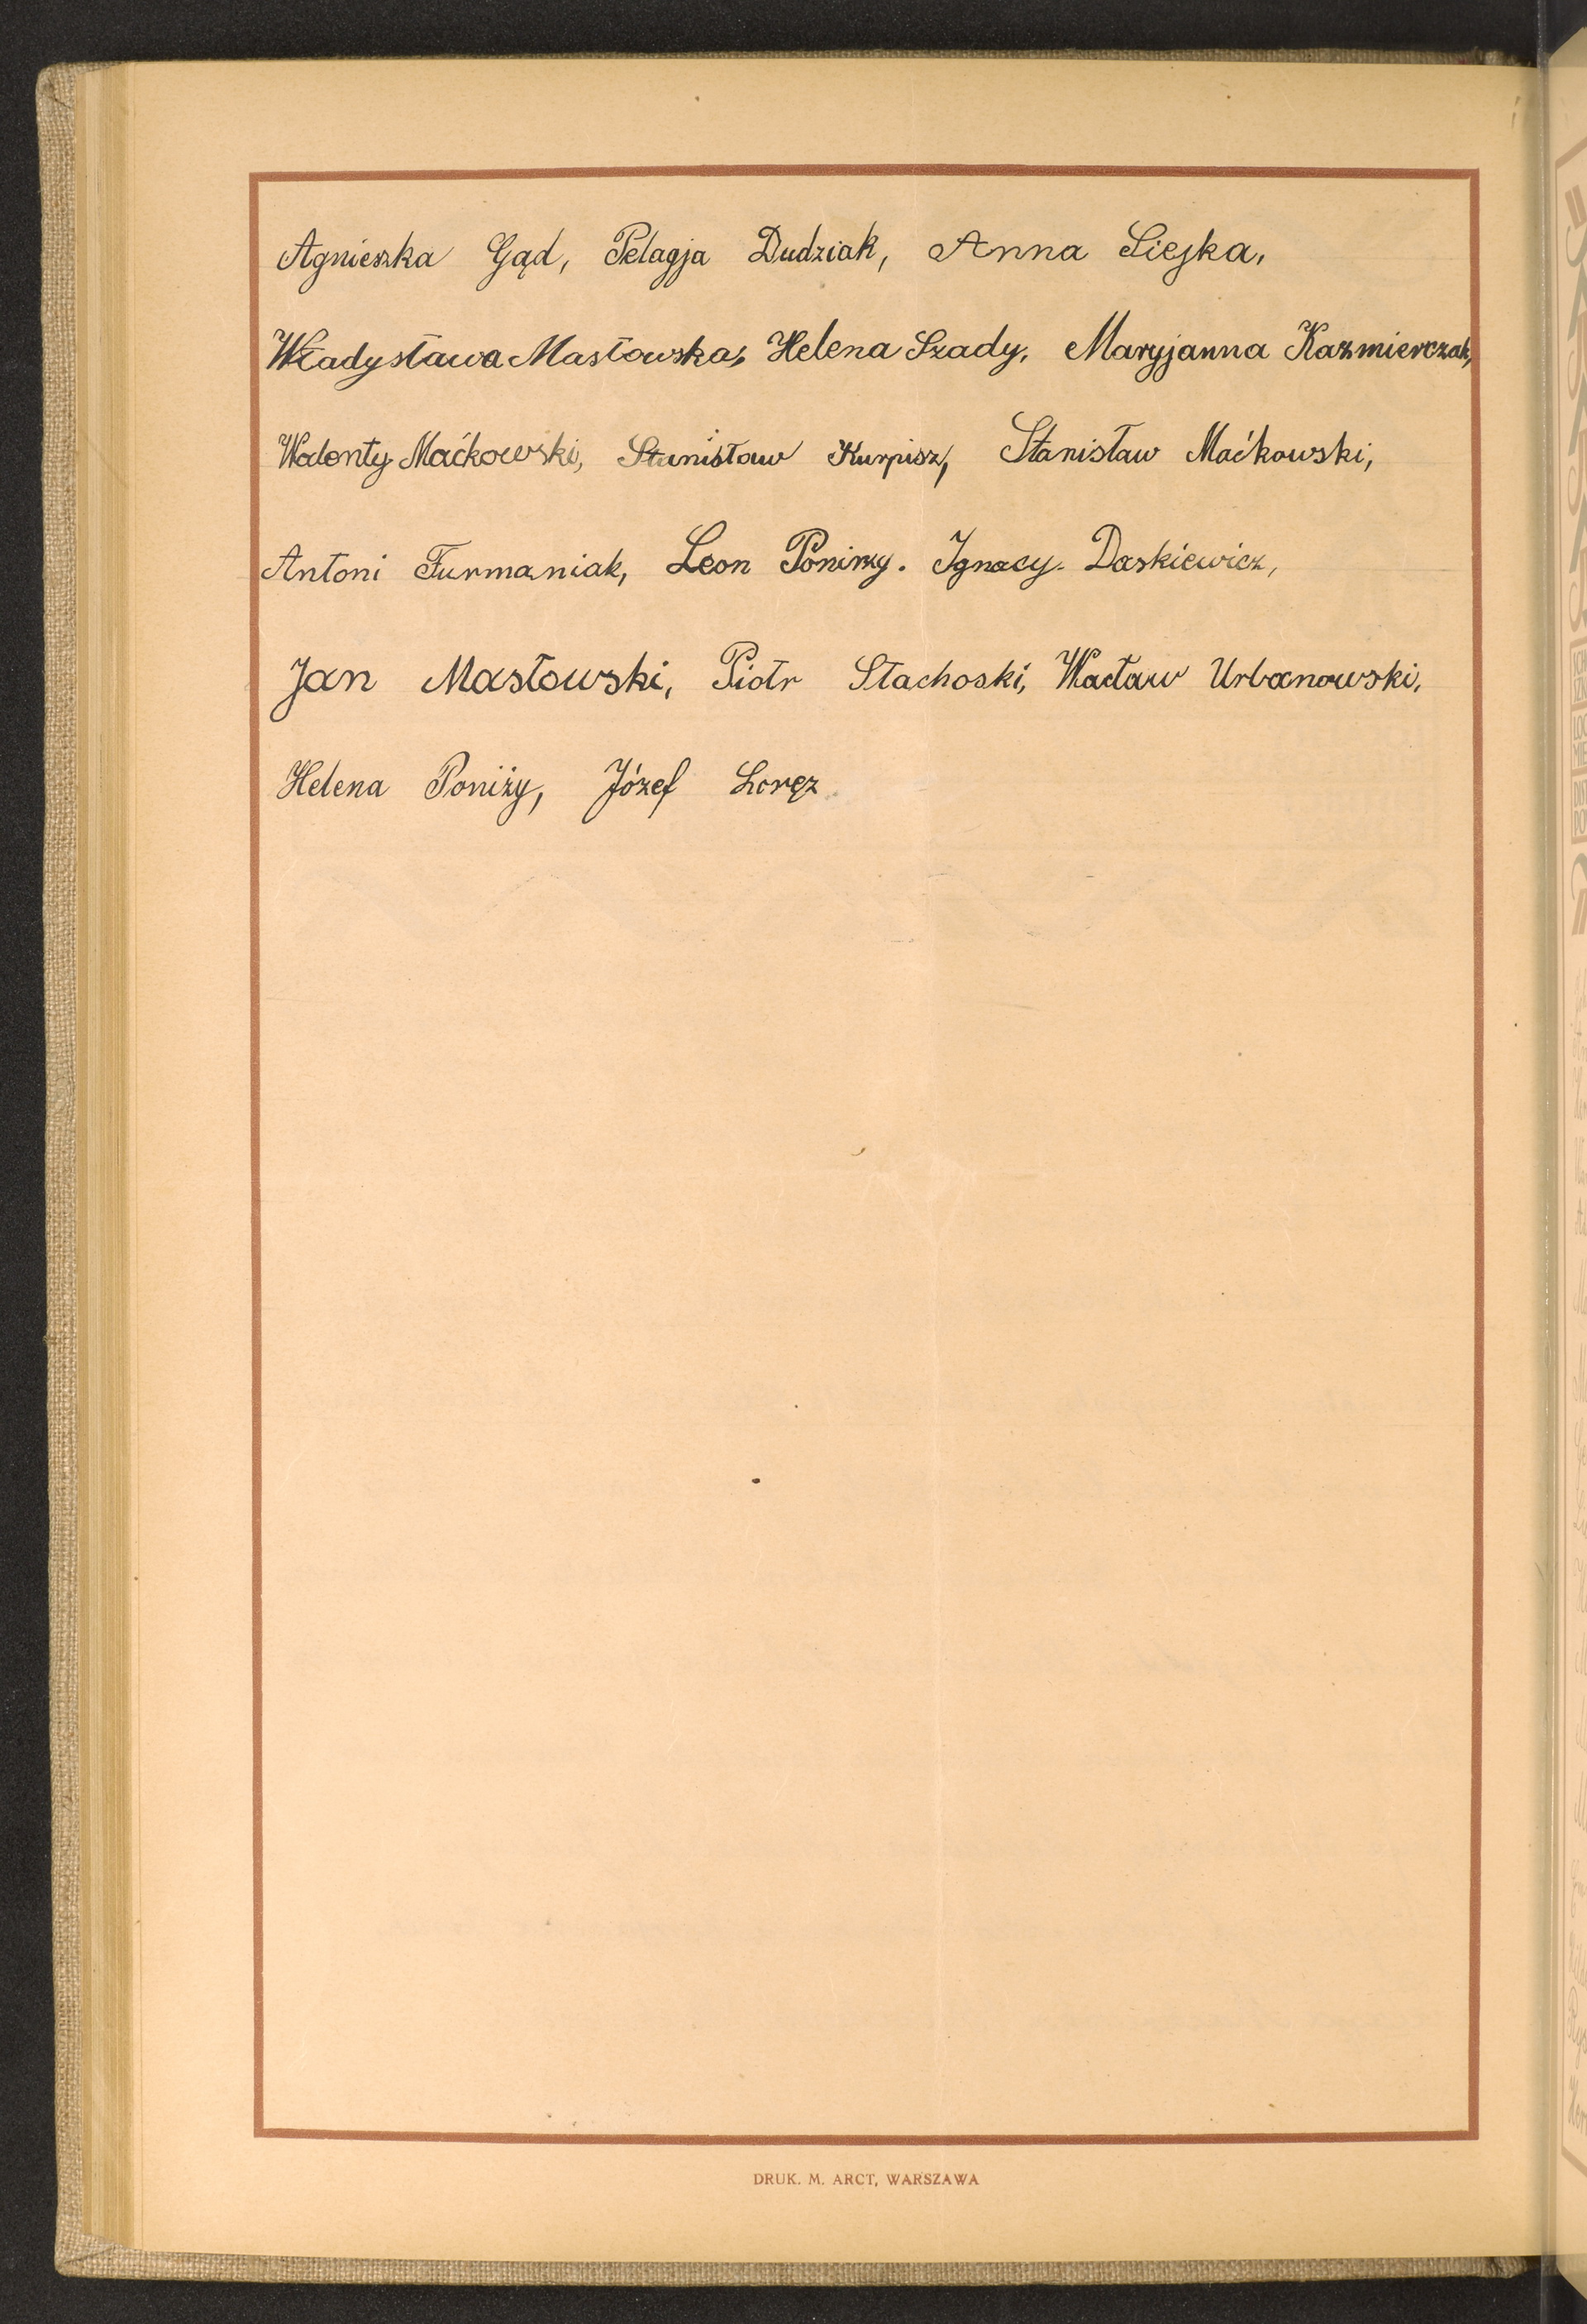 Agnieszka Gąd, Pelagja Dudziak, Anna Siejka,
Władysława Masłowska, Helena Szady, Maryjanna Kazmierczak,
Walenty Maćkowski, Stanisław Kurpisz, Stanisław Maćkowski,
Antoni Furmaniak, Leon Ponizy. Ignacy Daskiewicz,
Jan Masłowski, Piotr Stachoski, Wacław Urbanowski,
Helena Poniży, Józef
DRUK. M. ARCT, WARSZAWA